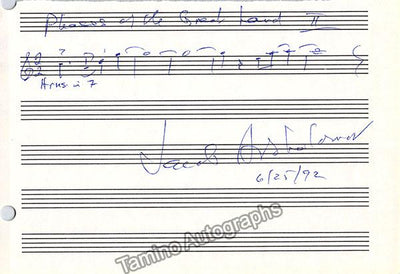 Phases of the Great Land II
Jacob Avshalomov
6/25/92
Tamino Autographs